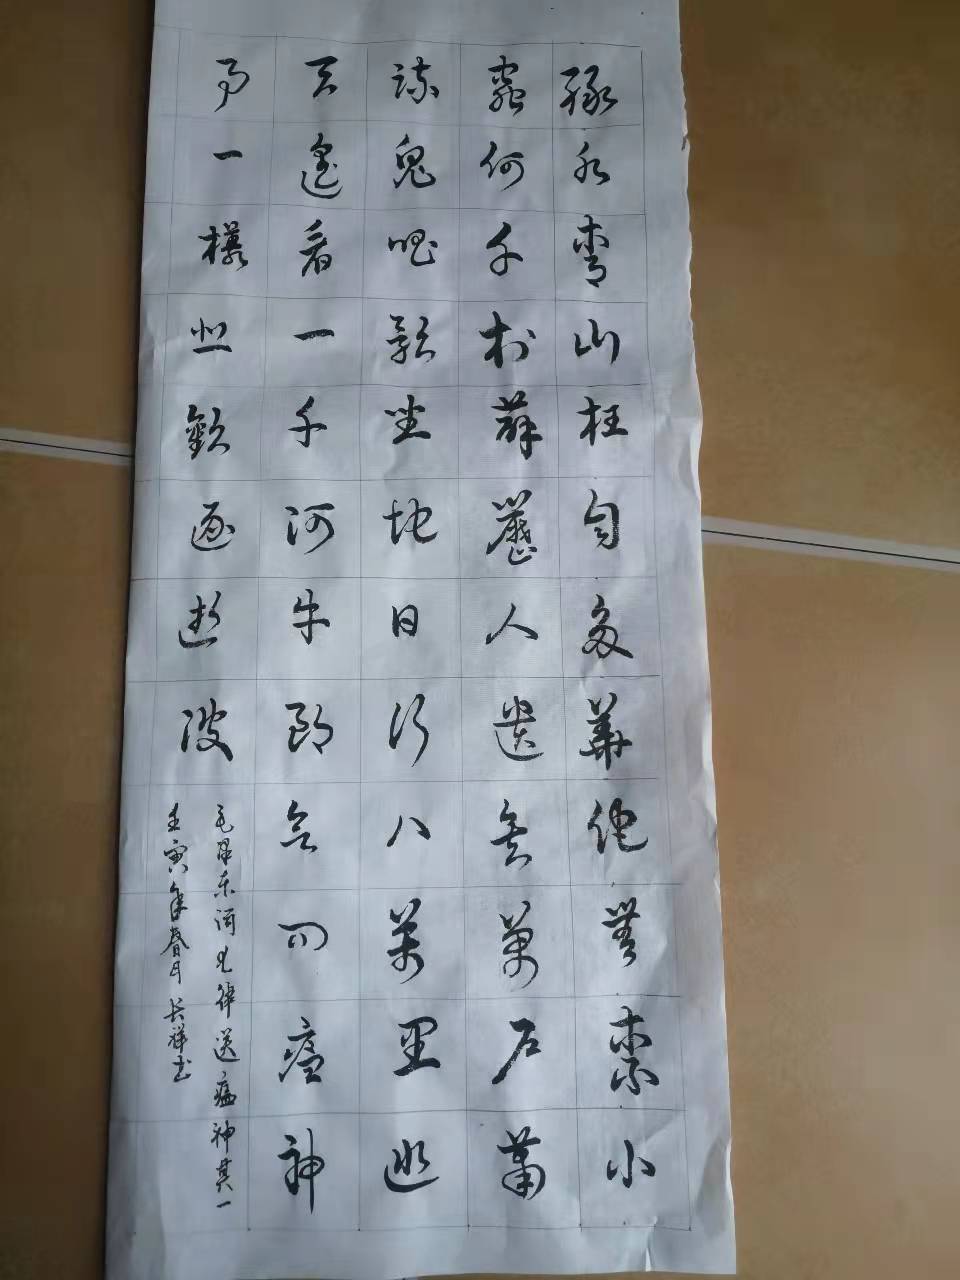 緑水青山枉自多華佗無柰小
蟲何千村薜荔人遺矢萬户蕭
疏鬼唱歌坐地日行八萬里巡
天遥看一千河牛郎欲问瘟神
事一樣悲歡逐逝波
毛泽东词七律送瘟神其一
壬寅年春月长祥书